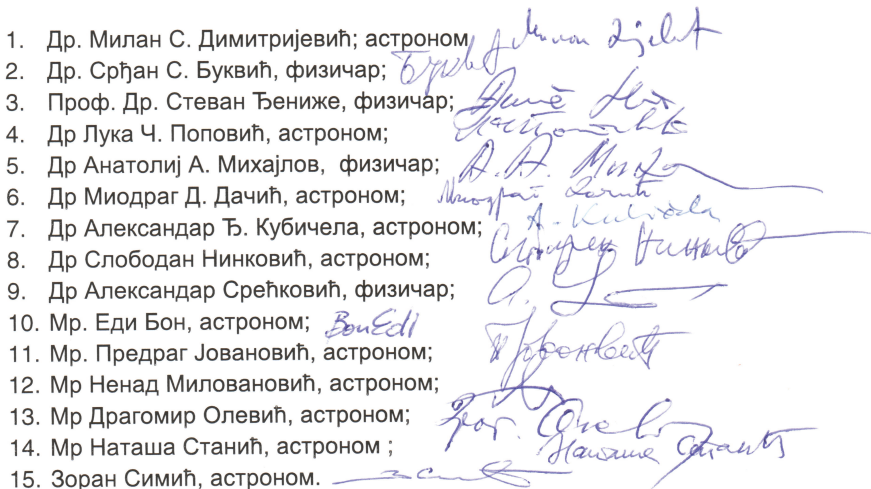 1. Др. Милан С. Димитријевић; астроном
2. Др. Срђан С. Буквић, физичар;
3. Проф. Др. Стеван Ђениже, физичар;
4. Др Лука Ч. Поповић, астроном;
5. Др Анатолиј А. Михајлов, физичар;
6. Др Миодраг Д. Дачић, астроном; Миодраг Дачић
7. Др Александар Ђ. Кубичела, астроном; A. Kubičela
8. Др Слободан Нинковић, астроном;
9. Др Александар Срећковић, физичар;
10. Мр. Еди Бон, астроном; Bon Edi
11. Мр. Предраг Јовановић, астроном;
12. Мр Ненад Миловановић, астроном;
13. Мр Драгомир Олевић, астроном;
14. Мр Наташа Станић, астроном ; Наташа Станић
15. Зоран Симић, астроном.